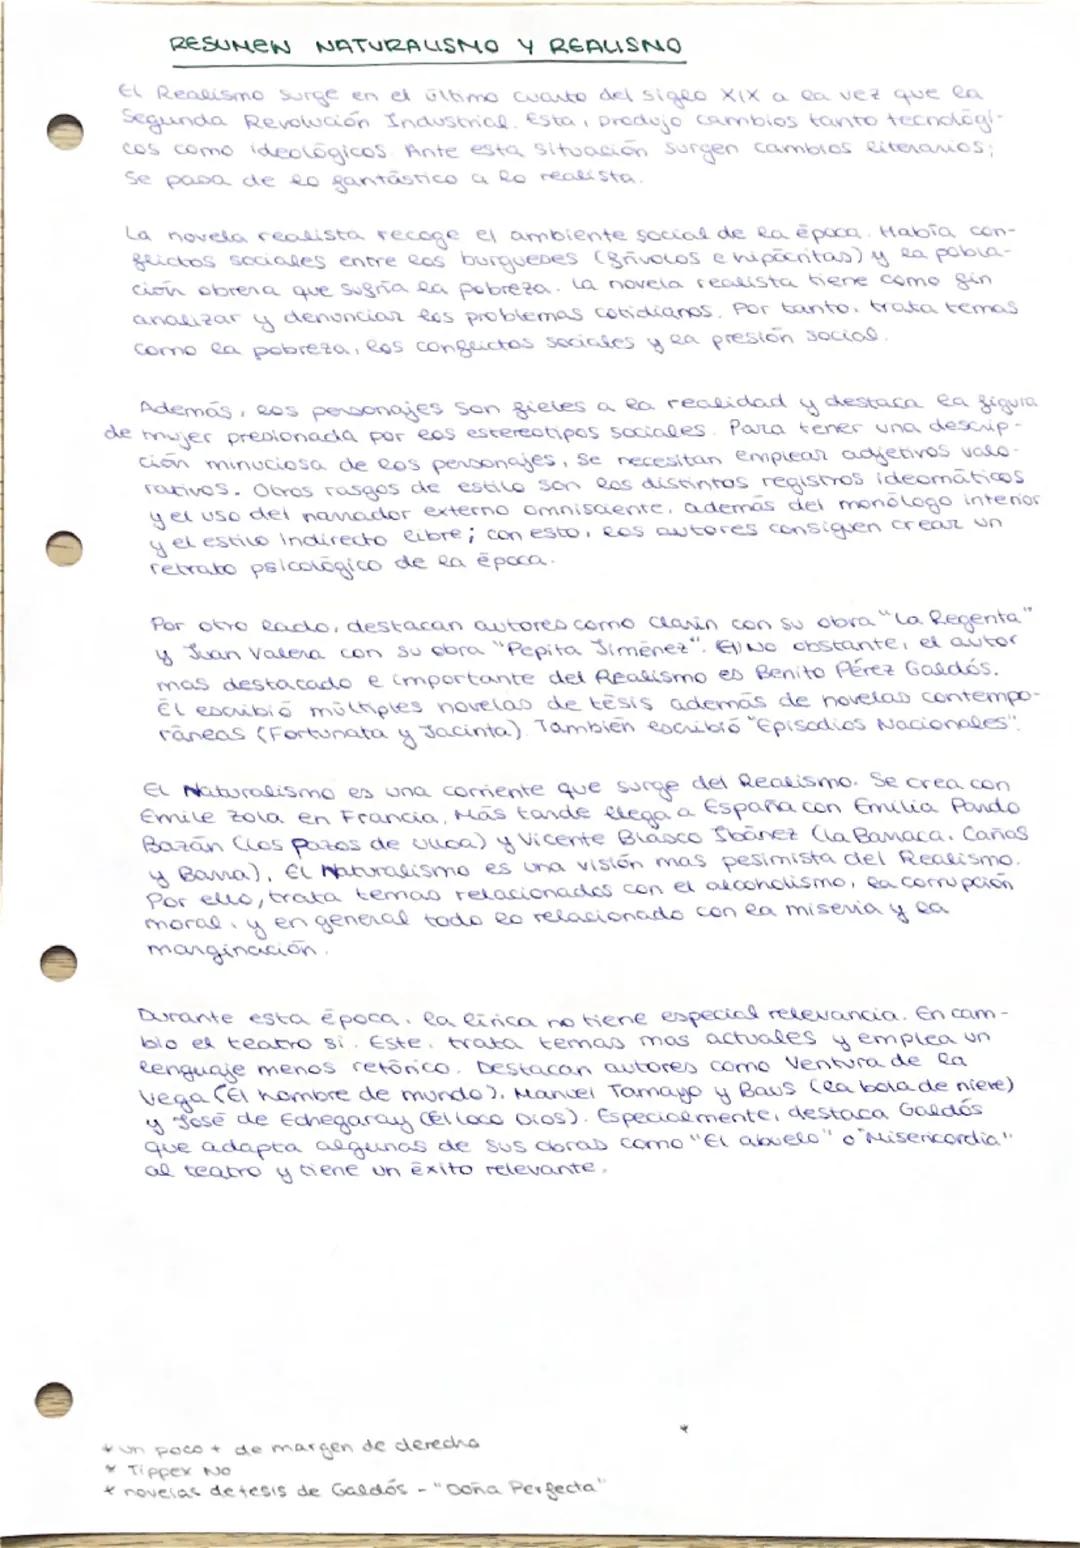 RESUMEN NATURALISMO Y REALISMO
El Realismo surge en el último cuarto del siglo XIX a la vez que la
Segunda Revolución Industrial. Esta, produjo cambios tanto tecnológi-
cos como ideológicos. Ante esta situación surgen cambios literarios;
se pasa de lo fantástico a lo realista.
La novela realista recoge el ambiente social de la época. Había con-
flictos sociales entre los burgueses (frívolos e hipócritas) y la pobla-
ción obrera que sufría la pobreza. La novela realista tiene como fin
analizar y denunciar los problemas cotidianos. Por tanto, trata temas
como la pobreza, los conflictos sociales y la presión social.
Además, los personajes son fieles a la realidad y destaca la figura
de mujer presionada por los estereotipos sociales. Para tener una descrip-
ción minuciosa de los personajes, se necesitan emplear adjetivos valo-
rativos. Otros rasgos de estilo son los distintos registros ideomáticos
y el uso del narrador externo omnisciente, además del monólogo interior
y el estilo indirecto libre; con esto, los autores consiguen crear un
retrato psicológico de la época.
Por otro lado, destacan autores como Clarín con su obra "La Regenta"
y Juan Valera con su obra "Pepita Jiménez". El No obstante, el autor
mas destacado e importante del Realismo es Benito Pérez Galdós.
Él escribió múltiples novelas de tésis además de novelas contempo-
ráneas (Fortunata y Jacinta). También escribió "Episodios Nacionales".
El Naturalismo es una corriente que surge del Realismo. Se crea con
Emile Zola en Francia, Más tarde llega a España con Emilia Pardo
Bazán (los pazos de Ulloa) y Vicente Blasco Ibánez (la Barraca, Cañas
y Barra). El Naturalismo es una visión mas pesimista del Realismo.
Por ello, trata temas relacionados con el alcoholismo, la corrupción
moral, y en general todo lo relacionado con la miseria y la
marginación.
Durante esta época, la lírica no tiene especial relevancia. En cam-
bio el teatro si. Este, trata temas mas actuales y emplea un
lenguaje menos retórico. Destacan autores como Ventura de la
Vega (El hombre de mundo), Manuel Tamayo y Baus (la bola de nieve)
y José de Echegaray (El loco Dios). Especialmente, destaca Galdós
que adapta algunas de sus obras como "El abuelo" o "Misericordia"
al teatro y tiene un éxito relevante.
* un poco + de margen de derecha
* Tippex No
* novelas de tesis de Galdós - "Doña Perfecta"